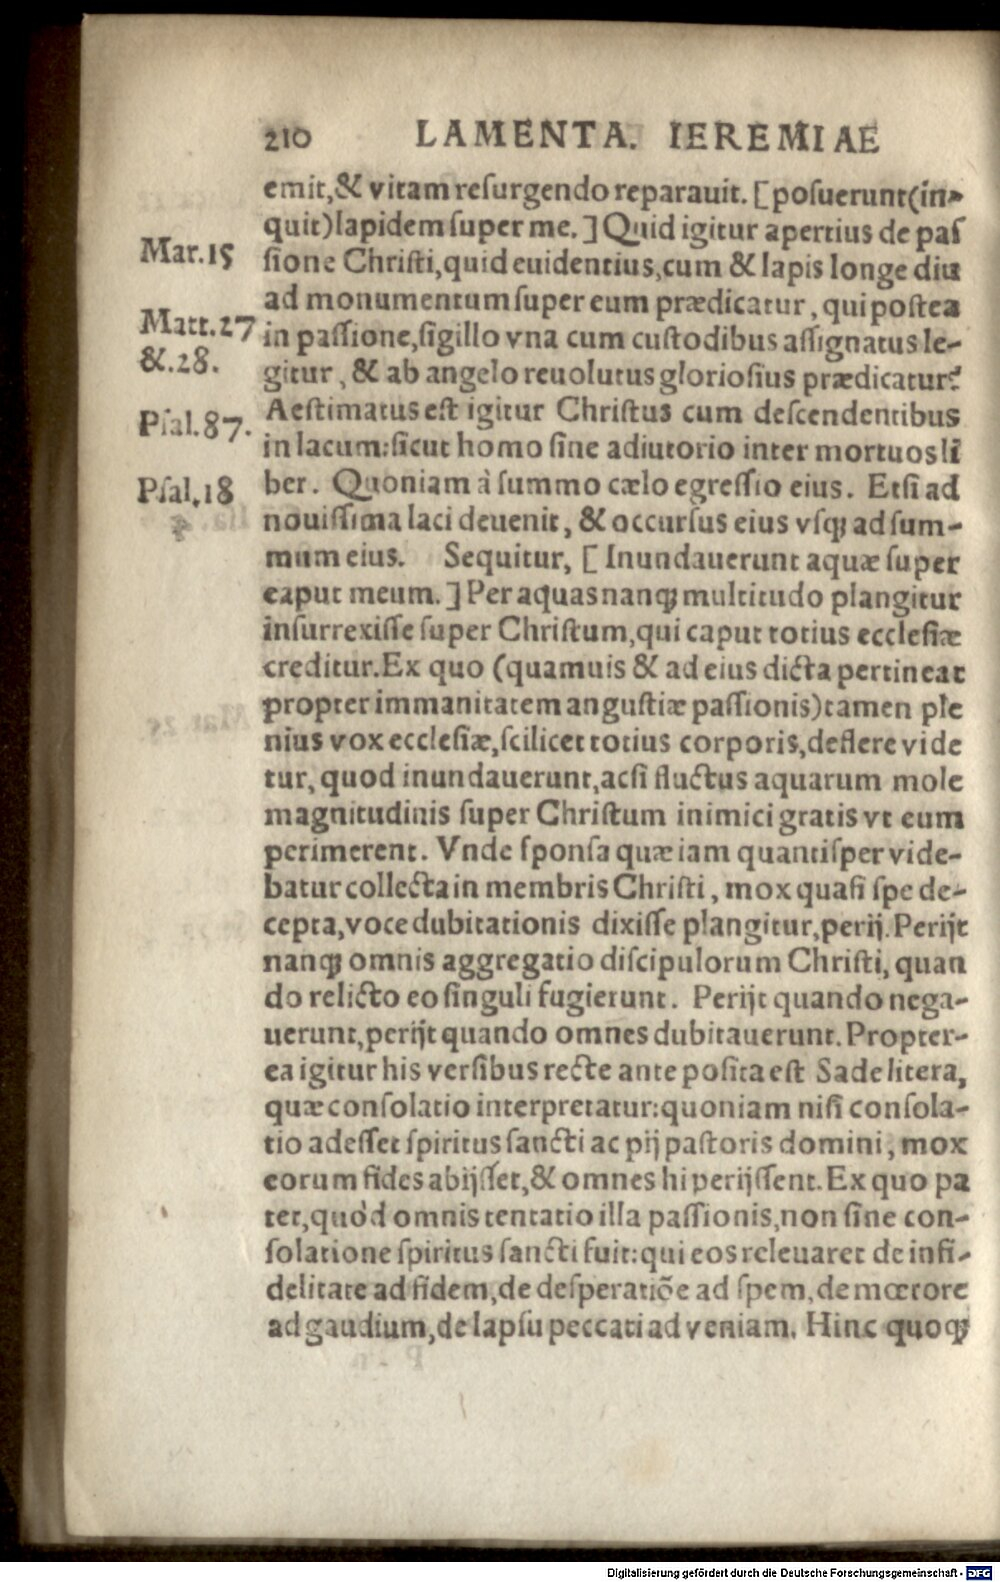 210 LAMENTA. IEREMIAE
emit,& vitam resurgendo reparauit. [posuerunt(in-
quit)lapidem super me.] Quid igitur apertius de pas
Mar.15
sione Christi,quid euidentius,cum & lapis longe diu
ad monumentum super eum prædicatur, qui postea
Matt.27
in passione,sigillo vna cum custodibus assignatus le-
&.28.
gitur, & ab angelo reuolutus gloriosius prædicatur?
Aestimatus est igitur Christus cum descendentibus
Psal.87.
in lacum:sicut homo sine adiutorio inter mortuos li
Psal.18
ber. Quoniam à summo cælo egressio eius. Etsi ad
nouissima laci deuenit, & occursus eius vsq; ad sum-
mum eius. Sequitur, [Inundauerunt aquæ super
caput meum.] Per aquas nanq; multitudo plangitur
insurrexisse super Christum,qui caput totius ecclesiæ
creditur.Ex quo (quamuis & ad eius dicta pertineat
propter immanitatem angustiæ passionis)tamen ple
nius vox ecclesiæ,scilicet totius corporis,deflere vide
tur, quod inundauerunt,acsi fluctus aquarum mole
magnitudinis super Christum inimici gratis vt eum
perimerent. Vnde sponsa quæ iam quantisper vide-
batur collecta in membris Christi, mox quasi spe de-
cepta,voce dubitationis dixisse plangitur,perij.Perijt
nanq; omnis aggregatio discipulorum Christi, quan
do relicto eo singuli fugierunt. Perijt quando nega-
uerunt,perijt quando omnes dubitauerunt.Propter-
ea igitur his versibus recte ante posita est Sade litera,
quæ consolatio interpretatur:quoniam nisi consola-
tio adesset spiritus sancti ac pij pastoris domini, mox
eorum fides abijsset,& omnes hi perijssent.Ex quo pa
tet,quòd omnis tentatio illa passionis,non sine con-
solatione spiritus sancti fuit:qui eos releuaret de infi-
delitate ad fidem,de desperatiõe ad spem,de mœrore
ad gaudium,de lapsu peccati ad veniam. Hinc quoq;
Digitalisierung gefördert durch die Deutsche Forschungsgemeinschaft - DFG